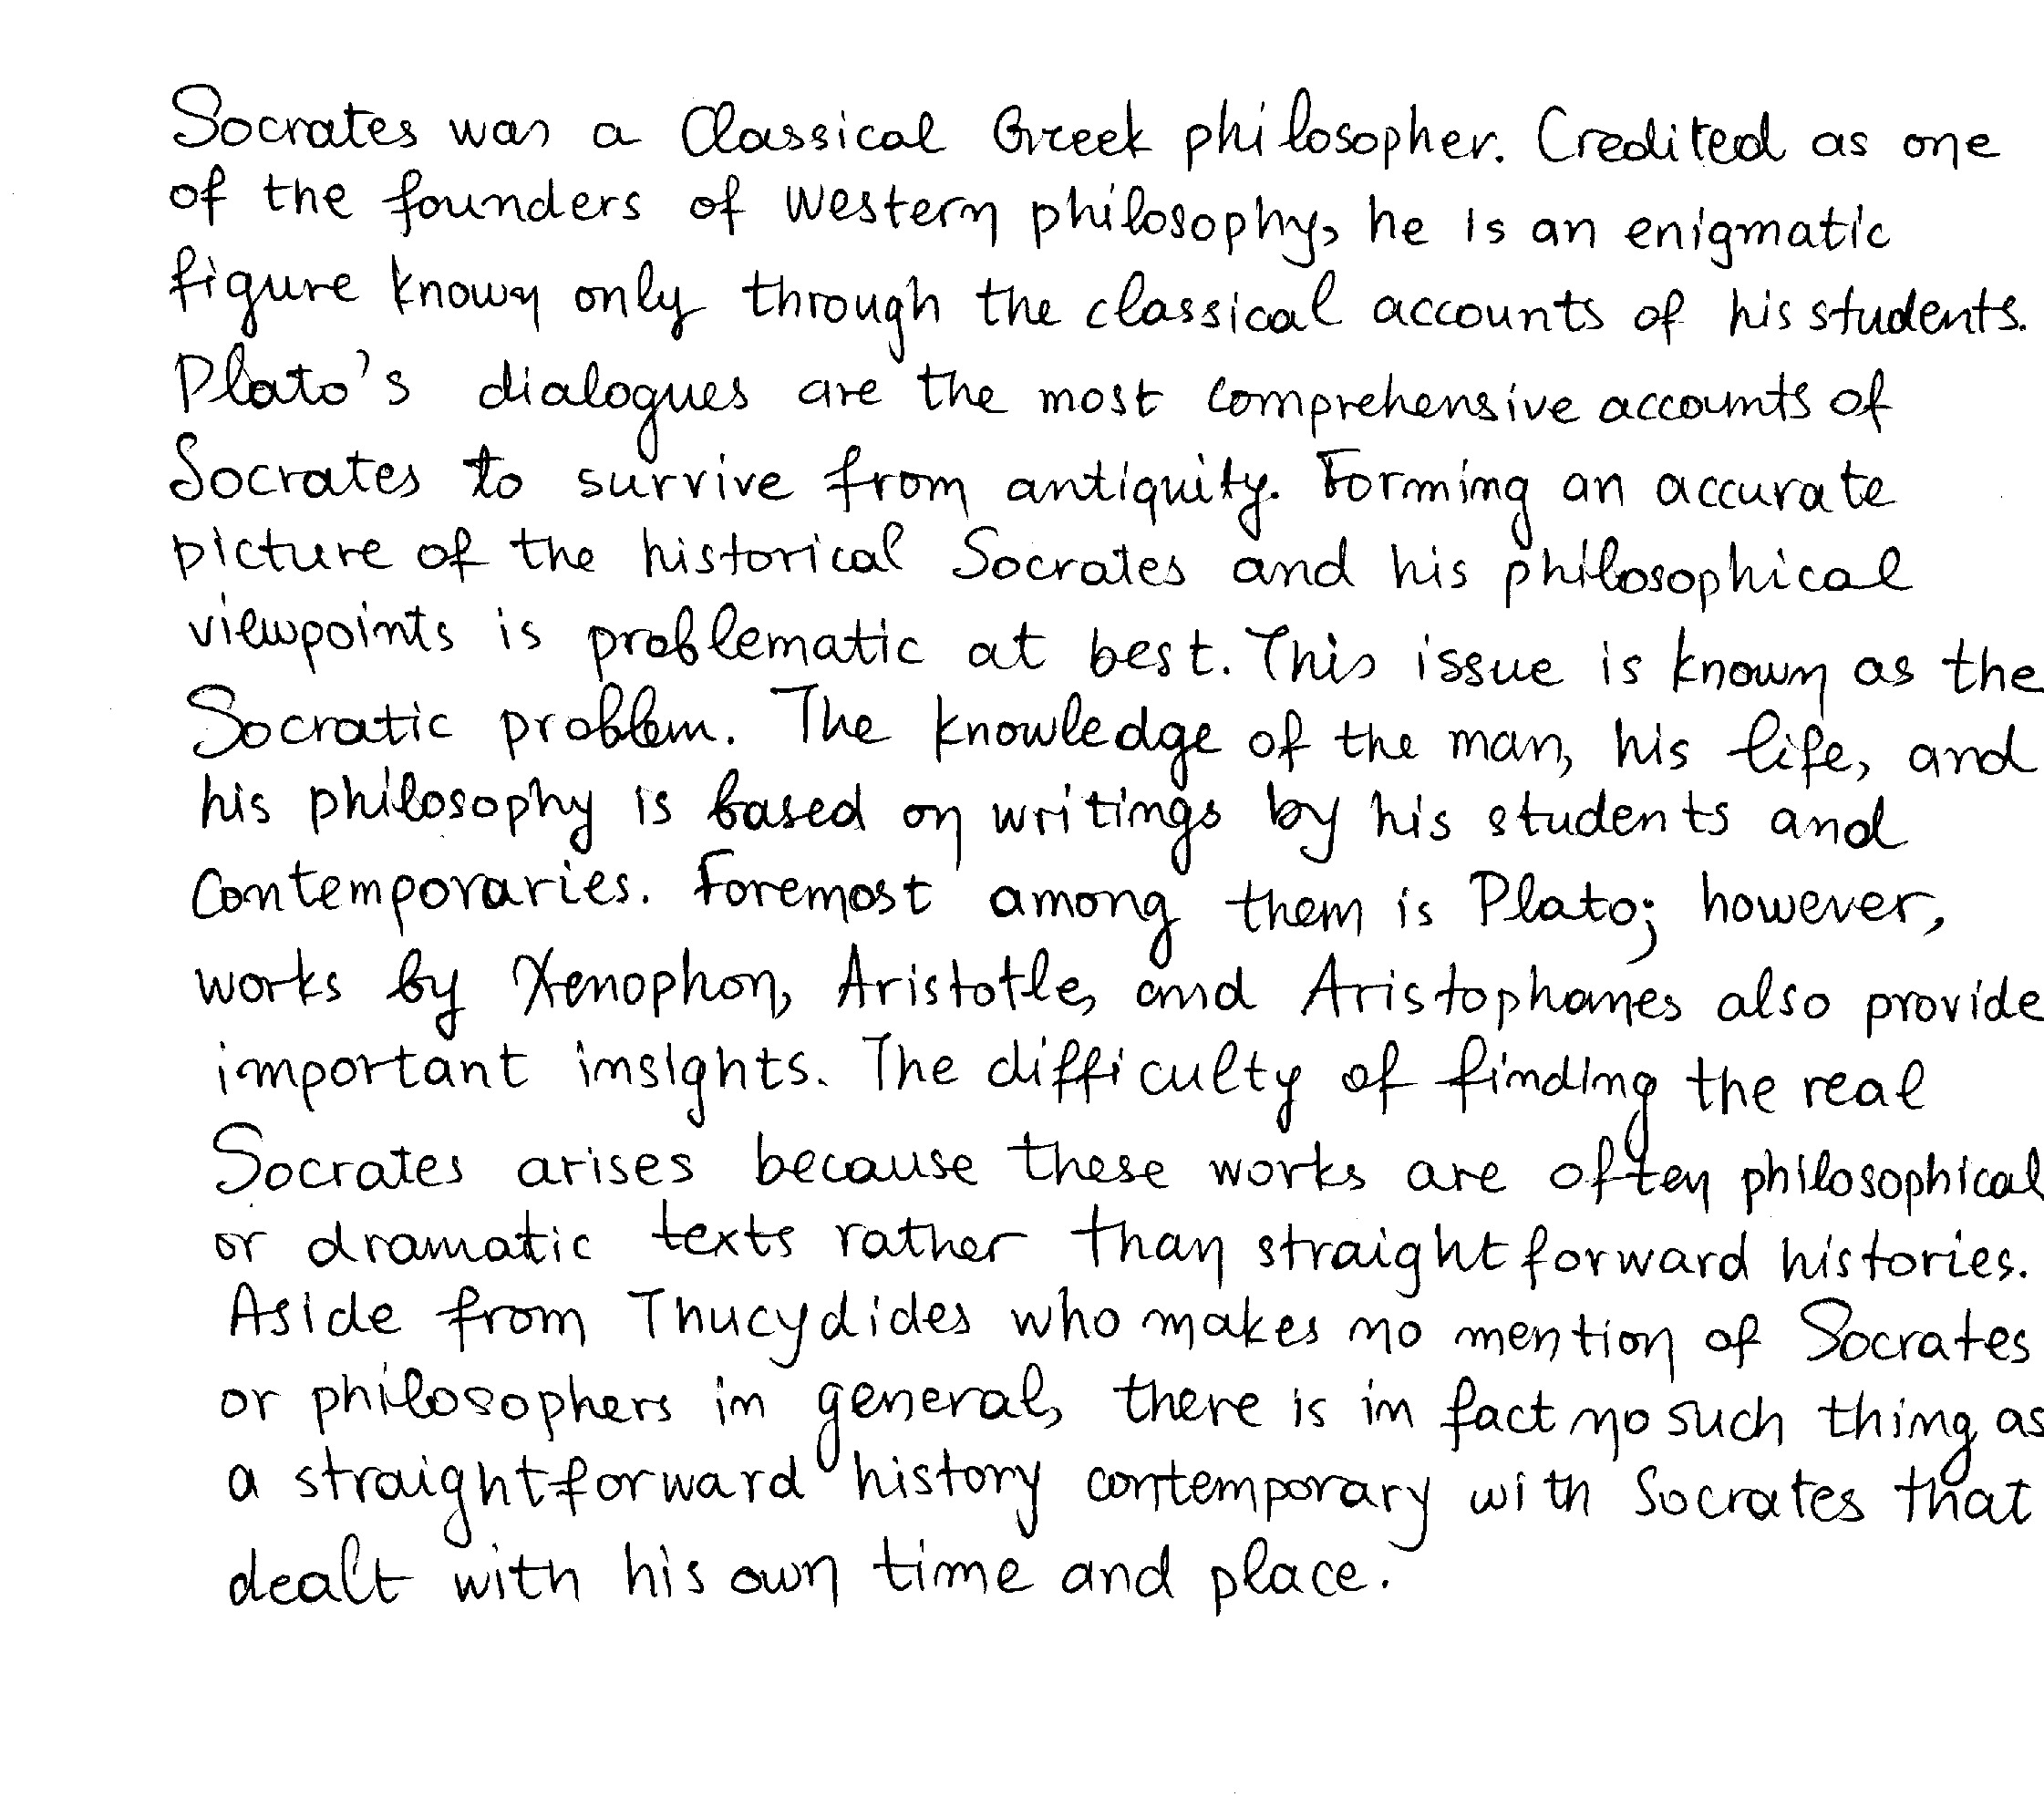 Socrates was a Classical Greek philosopher. Credited as one
of the founders of Western philosophy, he is an enigmatic
figure known only through the classical accounts of his students.
Plato's dialogues are the most comprehensive accounts of
Socrates to survive from antiquity. Forming an accurate
picture of the historical Socrates and his philosophical
viewpoints is problematic at best. This issue is known as the
Socratic problem. The knowledge of the man, his life, and
his philosophy is based on writings by his students and
contemporaries. Foremost among them is Plato; however,
works by Xenophon, Aristotle, and Aristophanes also provide
important insights. The difficulty of finding the real
Socrates arises because these works are often philosophical
or dramatic texts rather than straightforward histories.
Aside from Thucydides who makes no mention of Socrates
or philosophers in general, there is in fact no such thing as
a straightforward history contemporary with Socrates that
dealt with his own time and place.